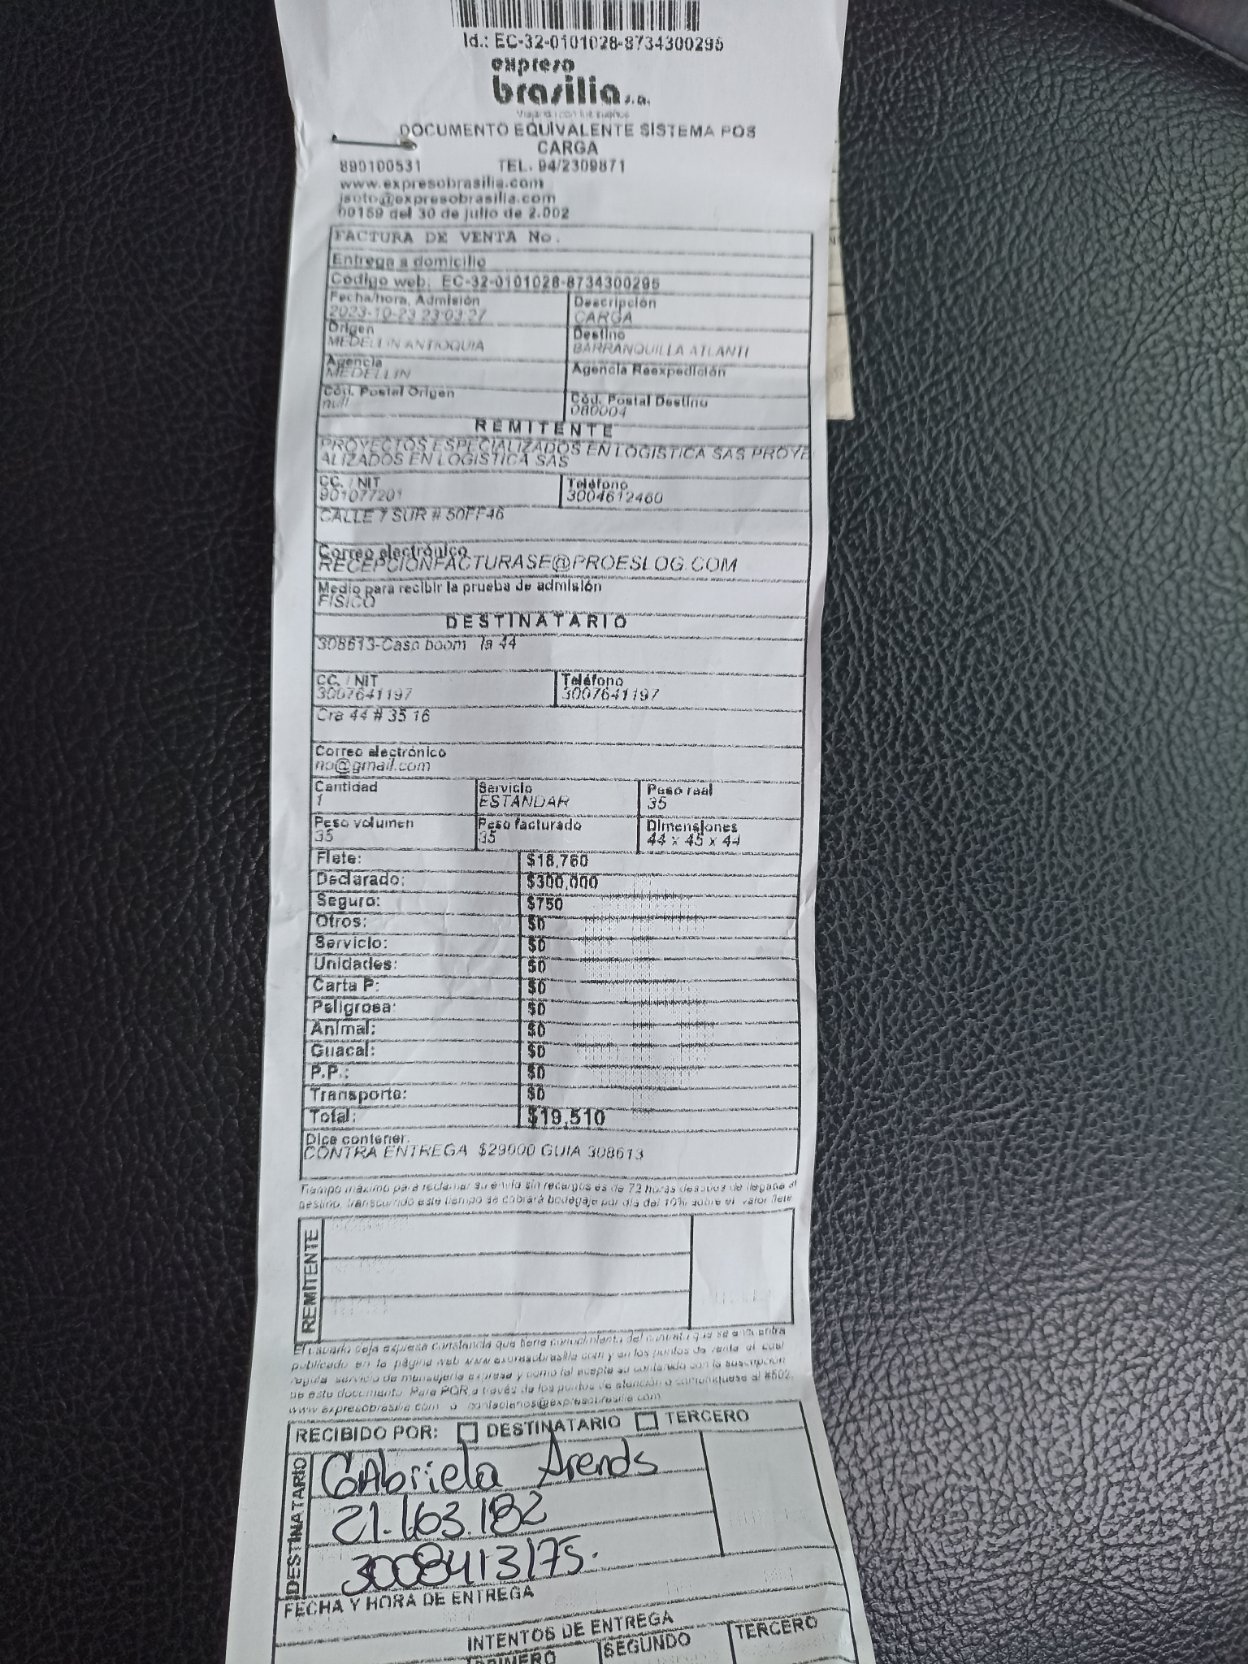 Id.: EC-32-0101028-8734300295
expreso
brasilia s.a.
DOCUMENTO EQUIVALENTE SISTEMA POS
CARGA
890100531 TEL. 94/2309871
www.expresobrasilia.com
jsoto@expresobrasilia.com
00159 del 30 de julio de 2.002
FACTURA DE VENTA No.
Entrega a domicilio
Código web: EC-32-0101028-8734300295
Fecha/hora, Admisión Descripción
2023-10-23 23:03:27 CARGA
Origen Destino
MEDELLIN ANTIOQUIA BARRANQUILLA ATLANTI
Agencia Agencia Reexpedición
MEDELLIN
Cód. Postal Origen Cód. Postal Destino
null 080004
REMITENTE
PROYECTOS ESPECIALIZADOS EN LOGISTICA SAS PROYE
ALIZADOS EN LOGISTICA SAS
CC. / NIT Teléfono
901077201 3004612460
CALLE 7 SUR # 50FF46
Correo electrónico
RECEPCIONFACTURASE@PROESLOG.COM
Medio para recibir la prueba de admisión
FISICO
DESTINATARIO
308613-Casa boom la 44
CC. / NIT Teléfono
3007641197 3007641197
Cra 44 # 35 16
Correo electrónico
no@gmail.com
Cantidad Servicio Peso real
1 ESTANDAR 35
Peso volumen Peso facturado Dimensiones
35 35 44 x 45 x 44
Flete: $18,760
Declarado: $300,000
Seguro: $750
Otros: $0
Servicio: $0
Unidades: $0
Carta P: $0
Peligrosa: $0
Animal: $0
Guacal: $0
P.P.: $0
Transporte: $0
Total: $19,510
Dice contener:
CONTRA ENTREGA $29000 GUIA 308613
Tiempo máximo para reclamar su envío sin recargos es de 72 horas después de llegada al
destino, transcurrido este tiempo se cobrará bodegaje por día del 10% sobre el valor flete
REMITENTE
El usuario deja expresa constancia que tiene conocimiento del contrato que se encuentra
publicado en la página web www.expresobrasilia.com y en los puntos de venta el cual
regula servicio de mensajería expresa y como tal acepta su contenido con la suscripción
de este documento. Para PQR a través de los puntos de atención o comuníquese al #502.
www.expresobrasilia.com o
RECIBIDO POR: DESTINATARIO TERCERO
DESTINATARIO
Gabriela Arends
21.163.182
3008413175.
FECHA Y HORA DE ENTREGA
INTENTOS DE ENTREGA
PRIMERO SEGUNDO TERCERO